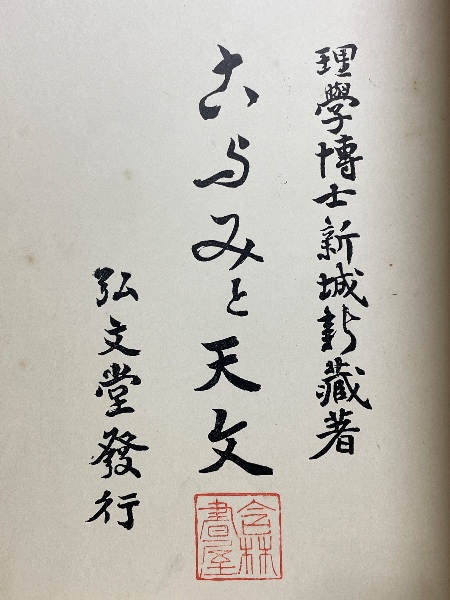 理學博士新城新藏著
こよみと天文
弘文堂發行
書屋